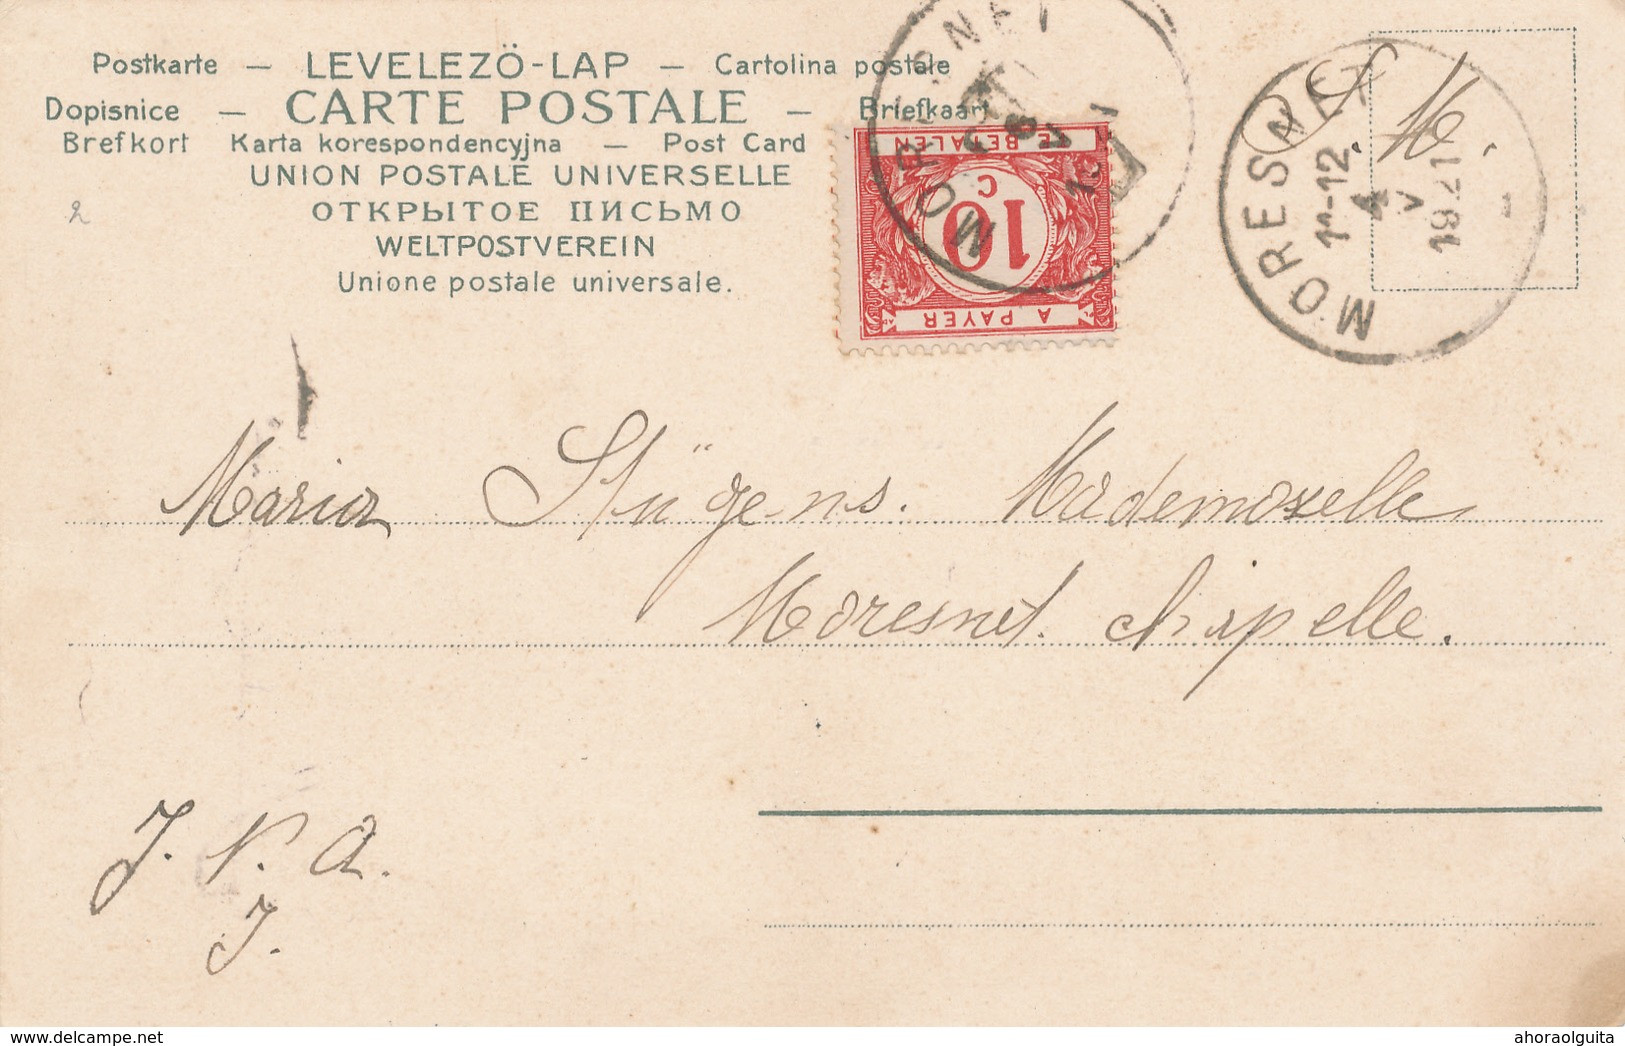 Postkarte — LEVELEZÖ-LAP — Cartolina postale
Dopisnice — CARTE POSTALE — Briefkaart
Brefkort Karta korespondencyjna — Post Card
UNION POSTALE UNIVERSELLE
ОТКРЫТОЕ ПИСЬМО
WELTPOSTVEREIN
Unione postale universale.
2
TE BETALEN
10
C
A PAYER
MORESNET
MORESNET
11-12
4
V
1921
S. M.
Maria Stügens. Mademoselle
Moresnet. chapelle.
J. V. A.
J.
www.delcampe.net
ahoraolguita